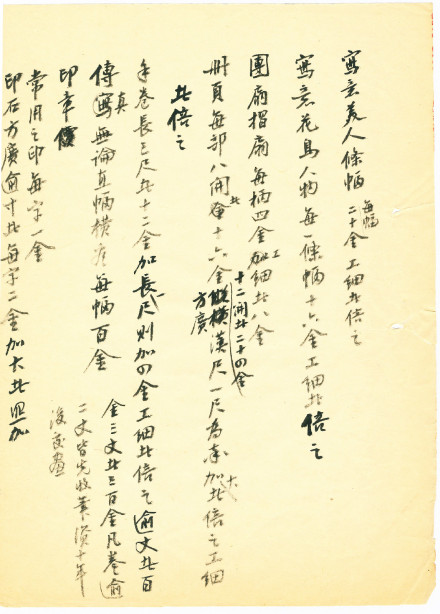 寫意美人條幅每幅二十金工細者倍之
寫意花鳥人物每一條幅十六金工細者倍之
團扇摺扇每柄四金加工細者八金
冊頁每部八開者十六金十二開者二十四金縱橫方廣漢尺一尺為率加大者倍之工細
者倍之
手卷長三尺者十二金加長尺則加四金工細者倍之逾丈者百
金三丈者三百金凡卷逾
二丈皆先收筆資十年
後交畫
傳真寫無論直幅橫卷每幅百金
印章
常用之印每字一金
印石方廣逾寸者每字二金加大者照加